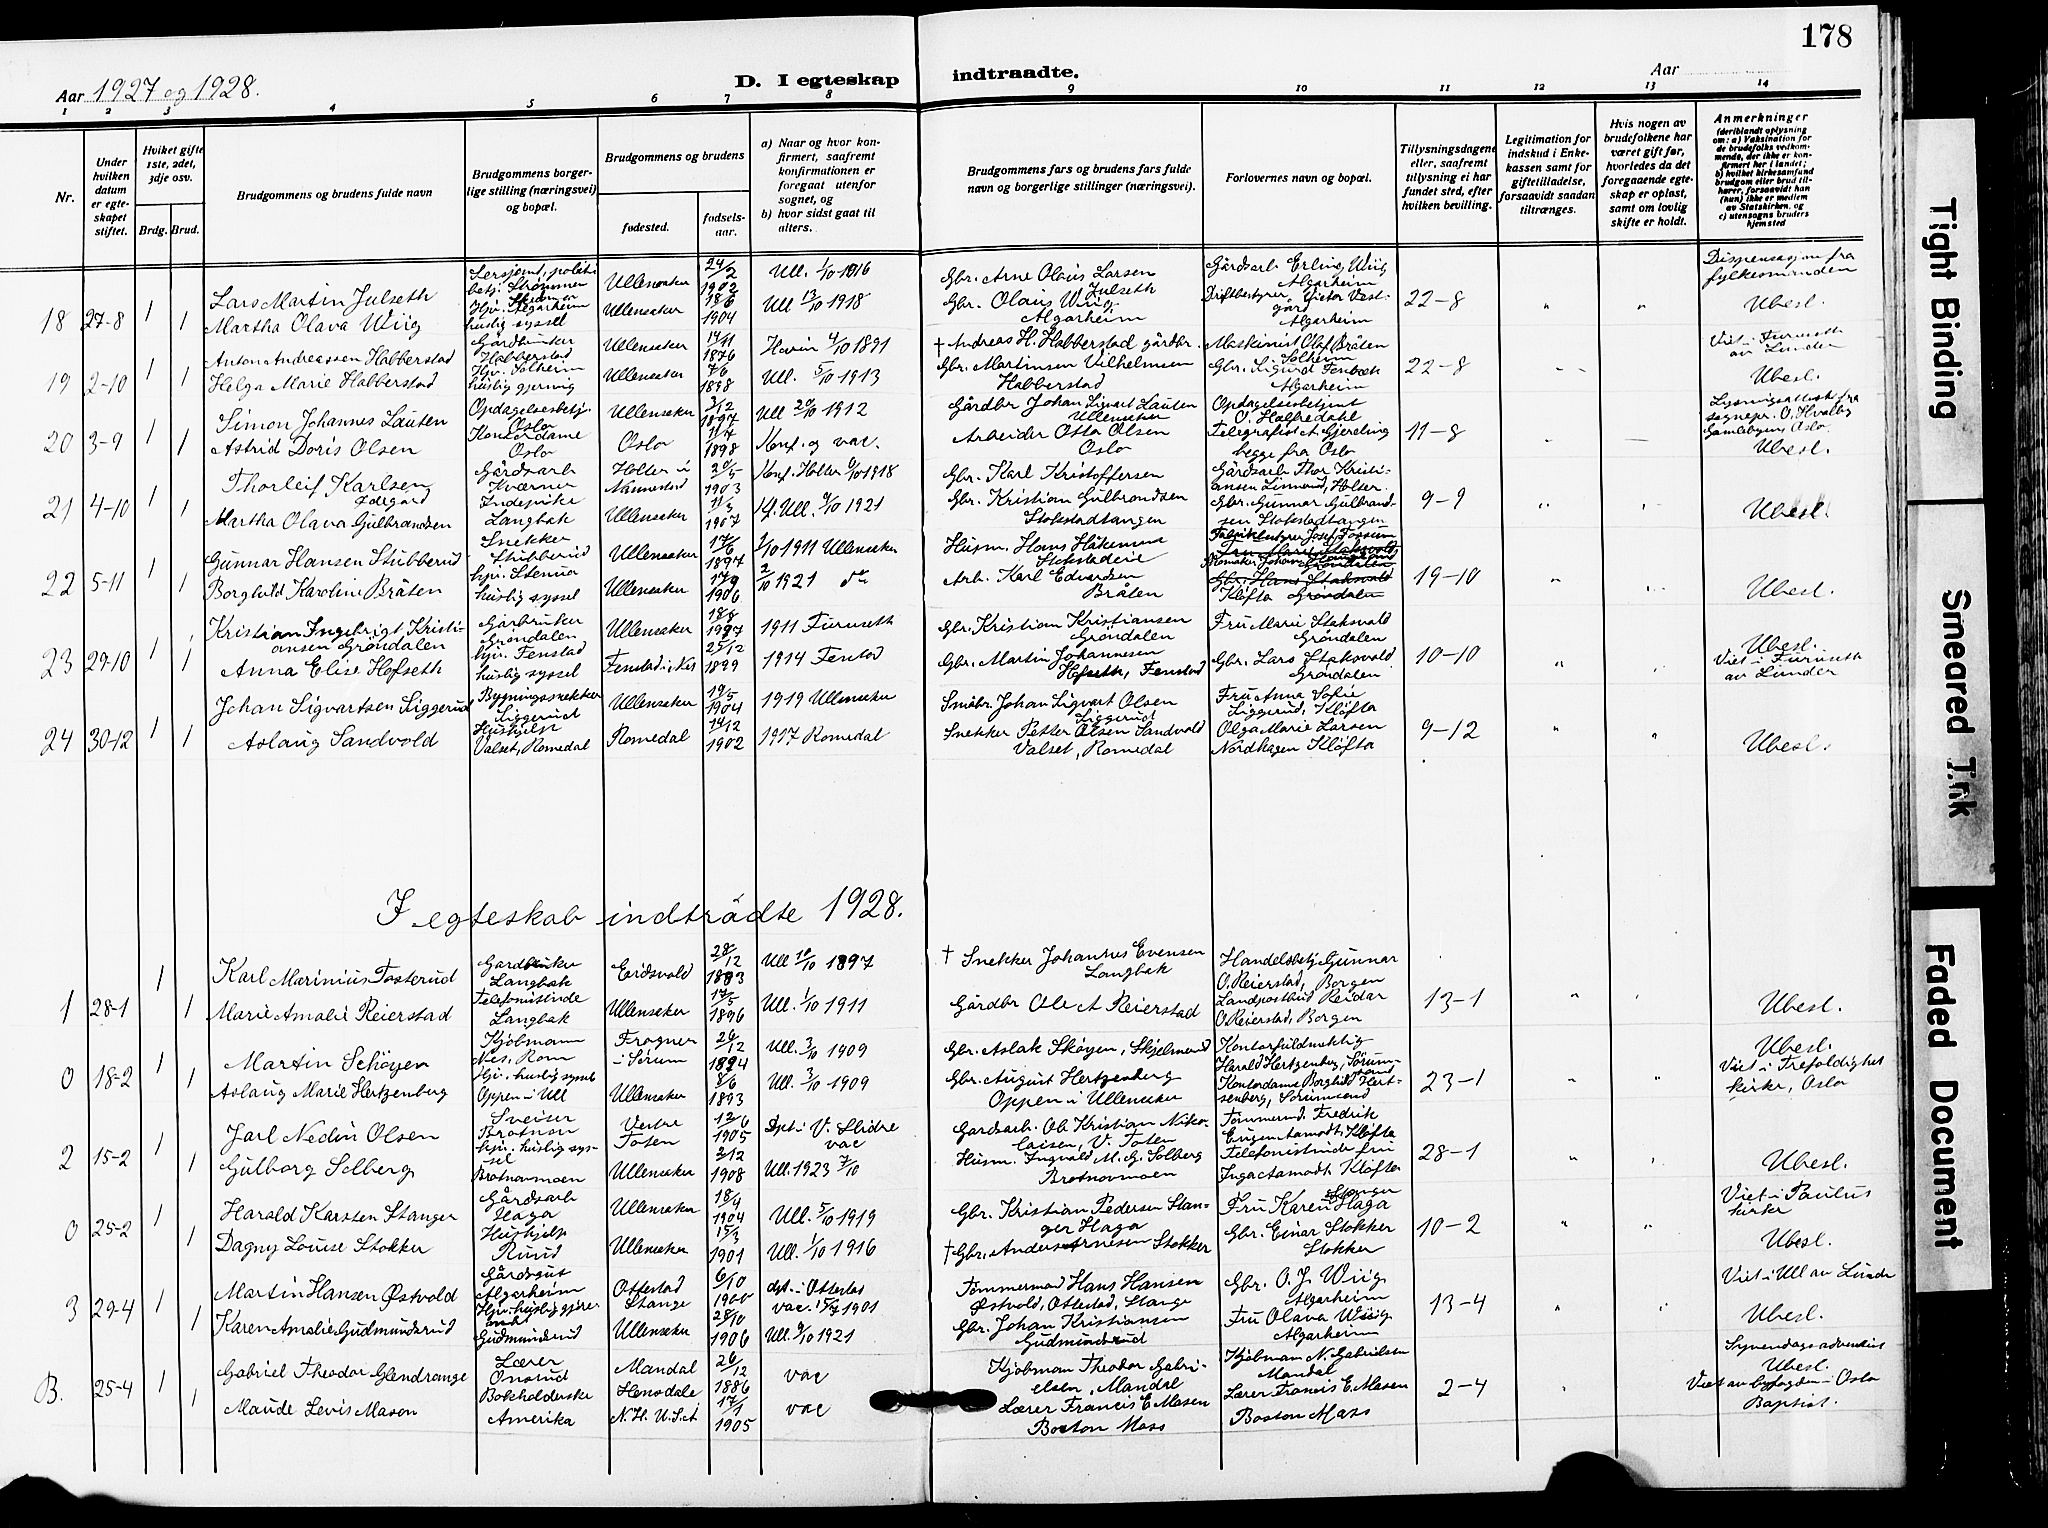 178
Aar 1927 og 1928.
D. I egteskap indtraadte.
Aar
1 2 3 4 5 6 7 8 9 10 11 12 13 14
Nr.
Under hvilken datum er egteskapet stiftet.
Hviket gifte 1ste, 2det, 3dje osv.
Brdg. Brud.
Brudgommens og brudens fulde navn
Brudgommens borgerlige stilling (næringsvei) og bopæl.
Brudgommens og brudens
fødested.
fødselsaar.
a) Naar og hvor konfirmert, saafremt konfirmationen er foregaat utenfor sognet, og
b) hvor sidst gaat til alters.
Brudgommens fars og brudens fars fulde navn og borgerlige stillinger (næringsvei).
Forlovernes navn og bopæl.
Tillysningsdagene eller, saafremt tillysning ei har fundet sted, efter hvilken bevilling.
Legitimation for indskud i Enkekassen samt for giftetilladelse, forsaavidt saadan tiltrænges.
Hvis nogen av brudefolkene har været gift før, hvorledes da det foregaaende egteskap er opløst, samt om lovlig skifte er holdt.
Anmerkninger
(deriblandt oplysning om: a) Vaksination for de brudefolks vedkommende, der ikke er konfirmert her i landet; b) hvilket kirkesamfund brudgom eller brud tilhører, forsaavidt han (hun) ikke er medlem av Statskirken, og c) utensogns bruders hjemsted
18 27-8 1 Lars Martin Julseth Ullensaker 24/2 1902 Ull. 1/10 1916 Gbr. Arne Olaus Larsen Julseth Gårdsarb. Erling Wiig Algarheim 22-8 Dispensasjon fra fylkesmanden
1 Martha Olava Wiig Hjv. Algarheim huslig syssel Ullensaker 18/6 1904 Ull 13/10 1918 Gbr. Olaus Wiig Algarheim Driftbestyrer Victor Vestgård Algarheim Ubesl.
19 2-10 1 Anton Andreassen Habberstad Gårdbruker Habberstad Ullensaker 14/11 1876 Hovin 4/10 1891 † Andreas H. Habberstad gårdbr. Maskinist Olaf Bråten Solheim 22-8 Viet i Furuseth av Lunder
1 Helga Marie Habberstad Hjv. Solheim huslig gjerning Ullensaker 7/6 1898 Ull. 5/10 1913 Gbr. Martinsen Vilhelmsen Habberstad Gbr. Sigurd Algarheim Ubesl.
20 3-9 1 Simon Johannes Lauten Opdagelsesbetj. Oslo Ullensaker 3/12 1897 Ull 20/10 1912 Gårdbr Johan Sigvart Lauten Ullensaker Opdagelsesbetjent O. Halfredahl 11-8 Lysningsattest fra sognepr. O. Hvalby Gamlebyen Oslo
1 Astrid Doris Olsen Kontordame Oslo Oslo 11/7 1898 Konf. og vac. Arbeider Otto Olsen Oslo Telegrafist A. Gjerding begge fra Oslo Ubesl.
21 4-10 1 Thorleif Karlsen Ødegård Gårdsarb Kværner Holter i Nannestad 20/5 1903 Konf. Holter 1918 Gbr. Karl Kristoffersen Gårdsarb Thor Kristiansen Linnerud, Holter 9-9
1 Martha Olava Gulbrandsen Indepike Langbak Ullensaker 11/3 1907 Ull. 9/10 1921 Gbr. Kristian Gulbrandsen Stokstadtangen Gbr. Gunnar Gulbrandsen Stokstadtangen Ubesl.
22 5-11 1 Gunnar Hansen Stubberud Snekker Stubberud Ullensaker 17/6 1897 1/10 1911 Ullensaker Husm. Hans Håkensen Fabrikbestyrer Josef Fossum 19-10
1 Borghild Karoline Bråten Hjv. Stenua huslig syssel Ullensaker 1906 2/10 1921 do Arb. Karl Edvardsen Bråten Kløfta Ubesl.
23 29-10 1 Kristian Ingebrigt Kristiansen Grøndalen Gårbruker Grøndalen Ullensaker 1897 1911 Furuseth Gbr. Kristian Kristiansen Grøndalen Fru Marie Staksvold Grøndalen 10-10 Ubesl.
1 Anna Elise Hofseth Hjv. Fenstad huslig syssel Fenstad i Nes 25/12 1899 1914 Fenstad Gbr. Martin Johannesen Hofseth, Fenstad Gbr. Lars Staksvold Grøndalen Viet i Furuseth av Lunder
24 30-12 1 Johan Sigvartsen Liggerud Bygningssnekker Liggerud Ullensaker 19/5 1904 1919 Ullensaker Småbr. Johan Sigvart Olsen Liggerud Fru Anna Sofie Liggerud, Kløfta 9-12
1 Aslaug Sandvold Hushjelp Valset, Romedal Romedal 14/12 1902 1917 Romedal Snekker Petter Olsen Sandvold Valset, Romedal Olga Marie Larsen Nordhagen Kløfta Ubesl.
I egteskab indtrådte 1928.
1 28-1 1 Karl Marinius Tosterud Gardbruker Langbak Eidsvold 28/12 1883 Ull 10/10 1897 † Snekker Johannes Evensen Langbak Handelsbetj. Gunnar O. Reierstad, Borgen 13-1
1 Marie Amalie Reierstad Telefonistinde Langbak Ullensaker 17/5 1896 Ull. 1/10 1911 Gårdbr Ole A Reierstad Landpostbud Reidar O Reierstad, Borgen Ubesl.
0 18-2 1 Martin Schøyen Kjøbmann Nes, Rom Frogner i Sørum 26/12 1894 Ull. 3/10 1909 Gbr. Aslak Skøyen, Skjelmerud Kontorfuldmektig Harald Hertzenberg, Sørumsand 23-1 Ubesl.
1 Aslaug Marie Hertzenberg Hjv. huslig syssel Oppen i Ull Ullensaker 8/6 1893 Ull. 3/10 1909 Gbr. August Hertzenberg Oppen i Ullensaker Kontordame Borghild Hertsenberg, Sørumsand Viet i Trefoldighetkirke, Oslo
2 15-2 1 Jarl Nedin Olsen Sveiser Brotnov Vestre Toten 12/6 1905 Døpt i V. Slidre vac Gardsarb. Ole Kristian Nikolaisen, V. Toten Tømmermd. Fredrik Eugen Aamodt, Kløfta 28-1
1 Gulborg Solberg Hjv. huslig syssel Brotnovmoen Ullensaker 3/12 1908 Ull. 1923 7/10 Husm. Ingvald M. G. Solberg Brotnovmoen Telefonistinde fru Inga Aamodt Kløfta Ubesl.
0 25-2 1 Harald Karsten Stanger Gårdsarb Haga Ullensaker 18/4 1904 Ull. 5/10 1919 Gbr. Kristian Pedersen Stanger Haga Fru Karen Stanger Haga 10-2 Viet i Paulus kirke
1 Dagny Louise Stokker Hushjelp Ruud Ullensaker 15/3 1901 Ull. 1/10 1916 † Gbr. Anders Arnesen Stokker Gbr. Einar Stokker Stokker Ubesl.
3 29-4 1 Martin Hansen Østvold Gårdsgut Algarheim Ottestad Stange 6/10 1900 døpt i Ottestad vac. 15/7 1901 Tømmermad Hans Hansen Østvold, Ottestad, Stange Gbr. O. J. Wiig Algarheim 13-4 Viet i Ull av Lunde
1 Karen Amelie Gudmundsrud Gudmundsrud Ullensaker 28/10 1906 Ull. 9/10 1921 Gbr. Johan Kristiansen Gudmundsrud Fru Olava Wiig Algarheim Ubesl.
B. 25-4 1 Gabriel Theodor Glendrange Lærer Onsrud Mandal 26/12 1886 vac Kjøbman Theodor Gabrielsen, Mandal Kjøbman N. Gabrielsen Mandal 2-4 Syvendagsadventist Ubesl.
1 Maude Levis Mason Bokholderske Amerika Hensdale N. H. U.S.A 17/1 1905 vac Lærer Francis E Masen Boston Mass Lærer Francis E. Masen Boston Mass Viet av byfogden i Oslo Baptist.
Tight Binding
Smeared Ink
Faded Document